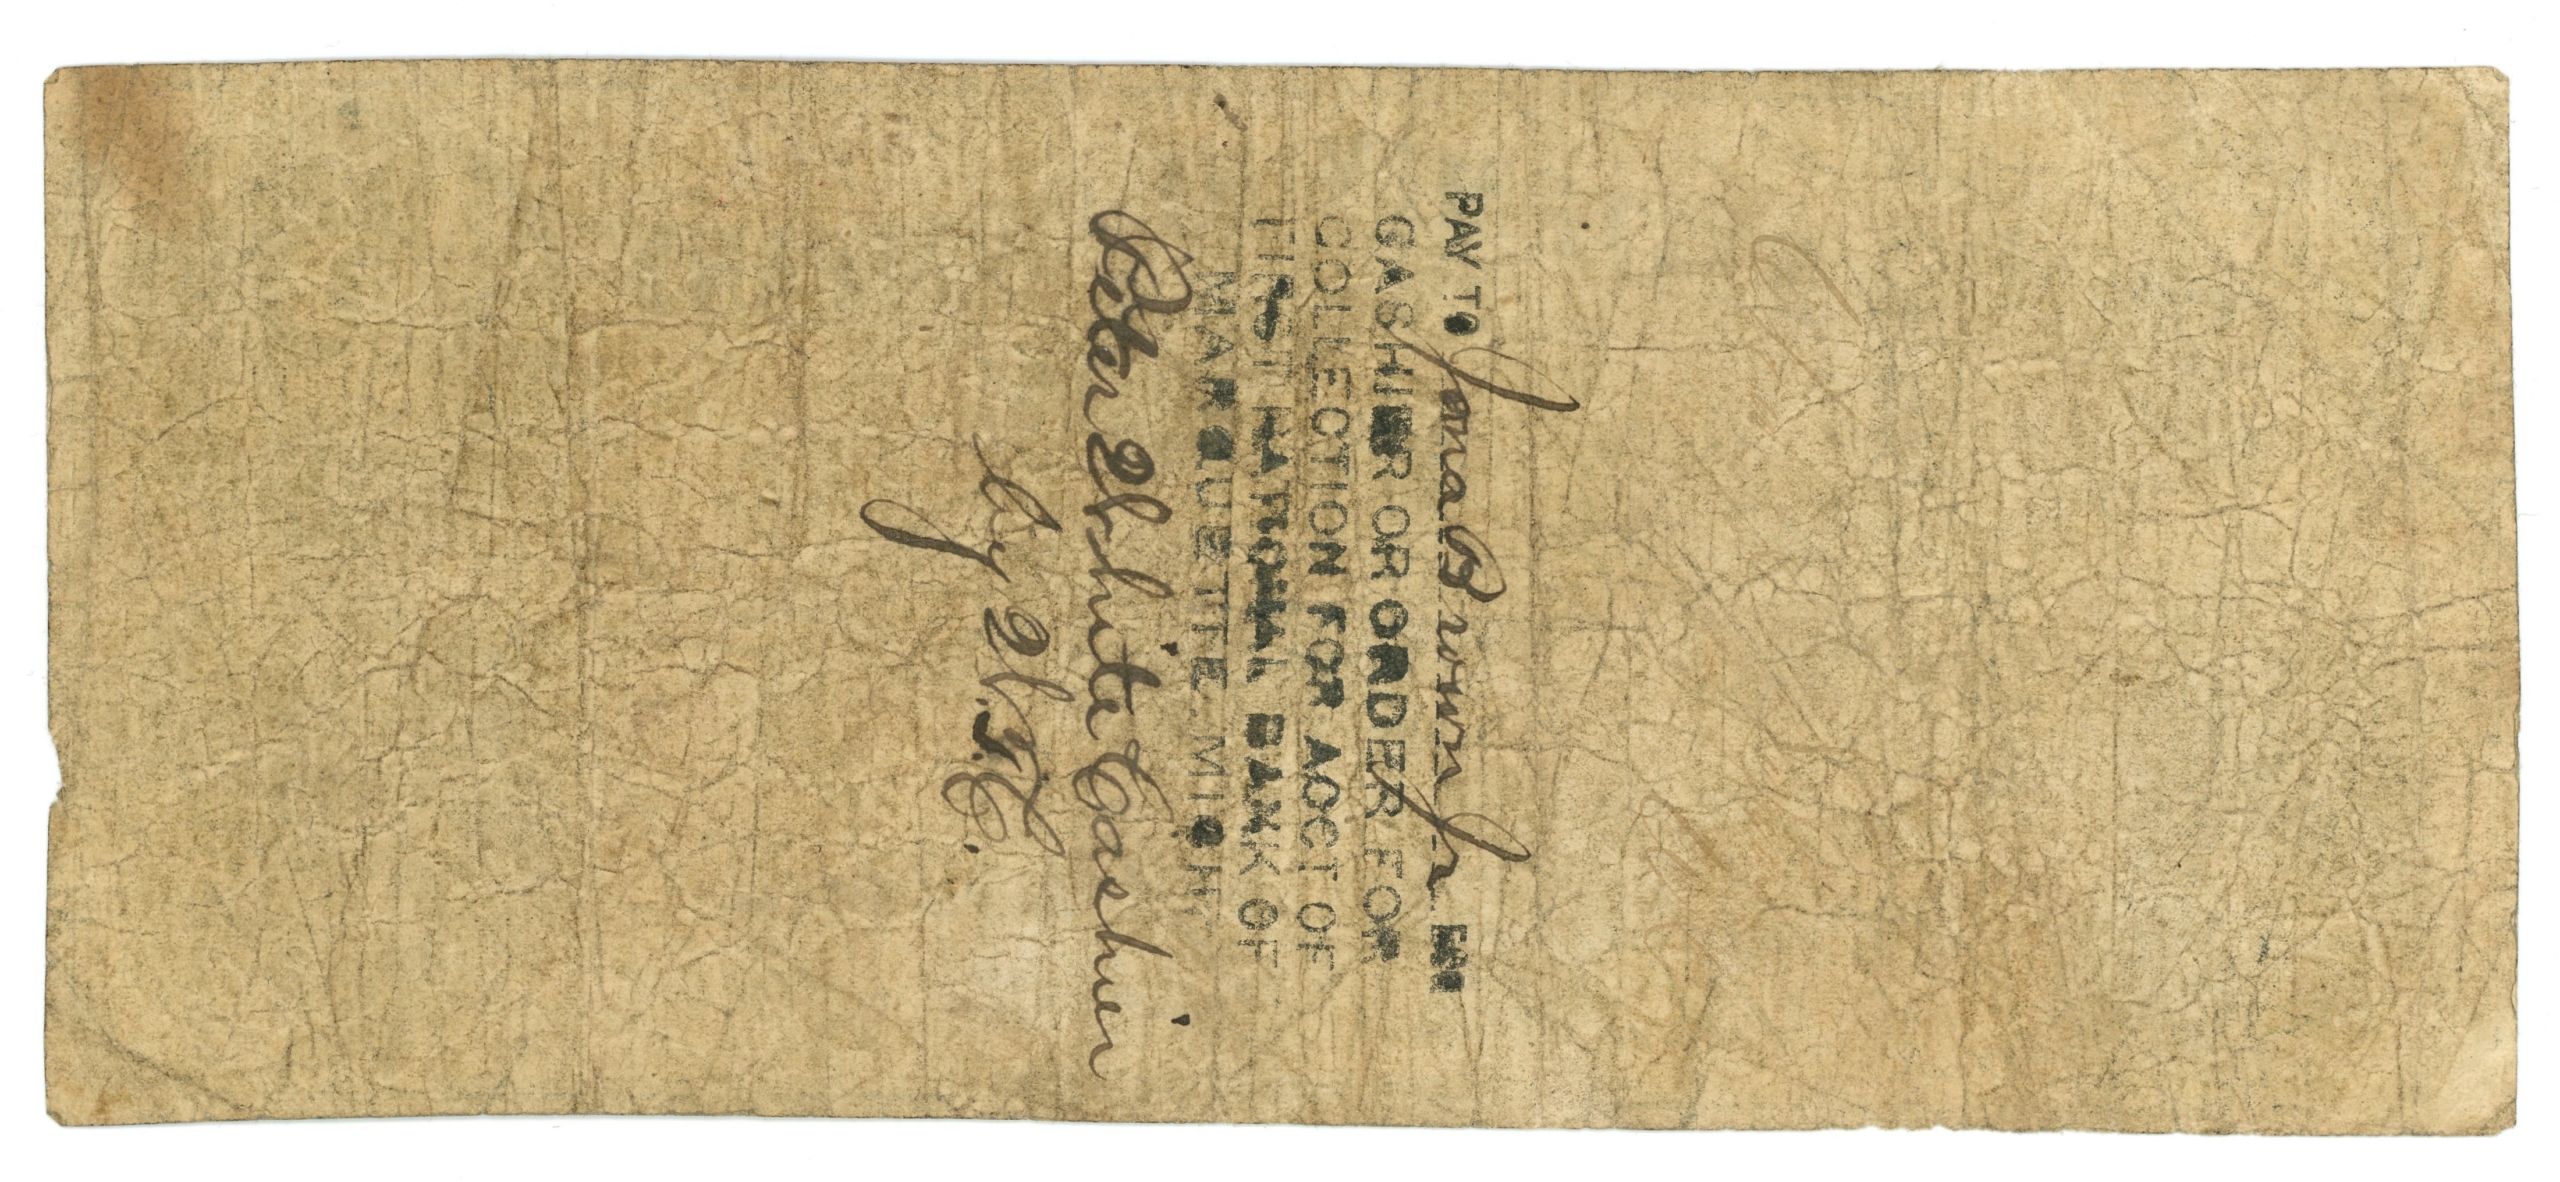 PAY TO Jona Brown Jr ESQ
CASHIER OR ORDER FOR
COLLECTION FOR ACCT OF
FIRST NATIONAL BANK OF
MARQUETTE. MICH
Peter White Cashier
by W.